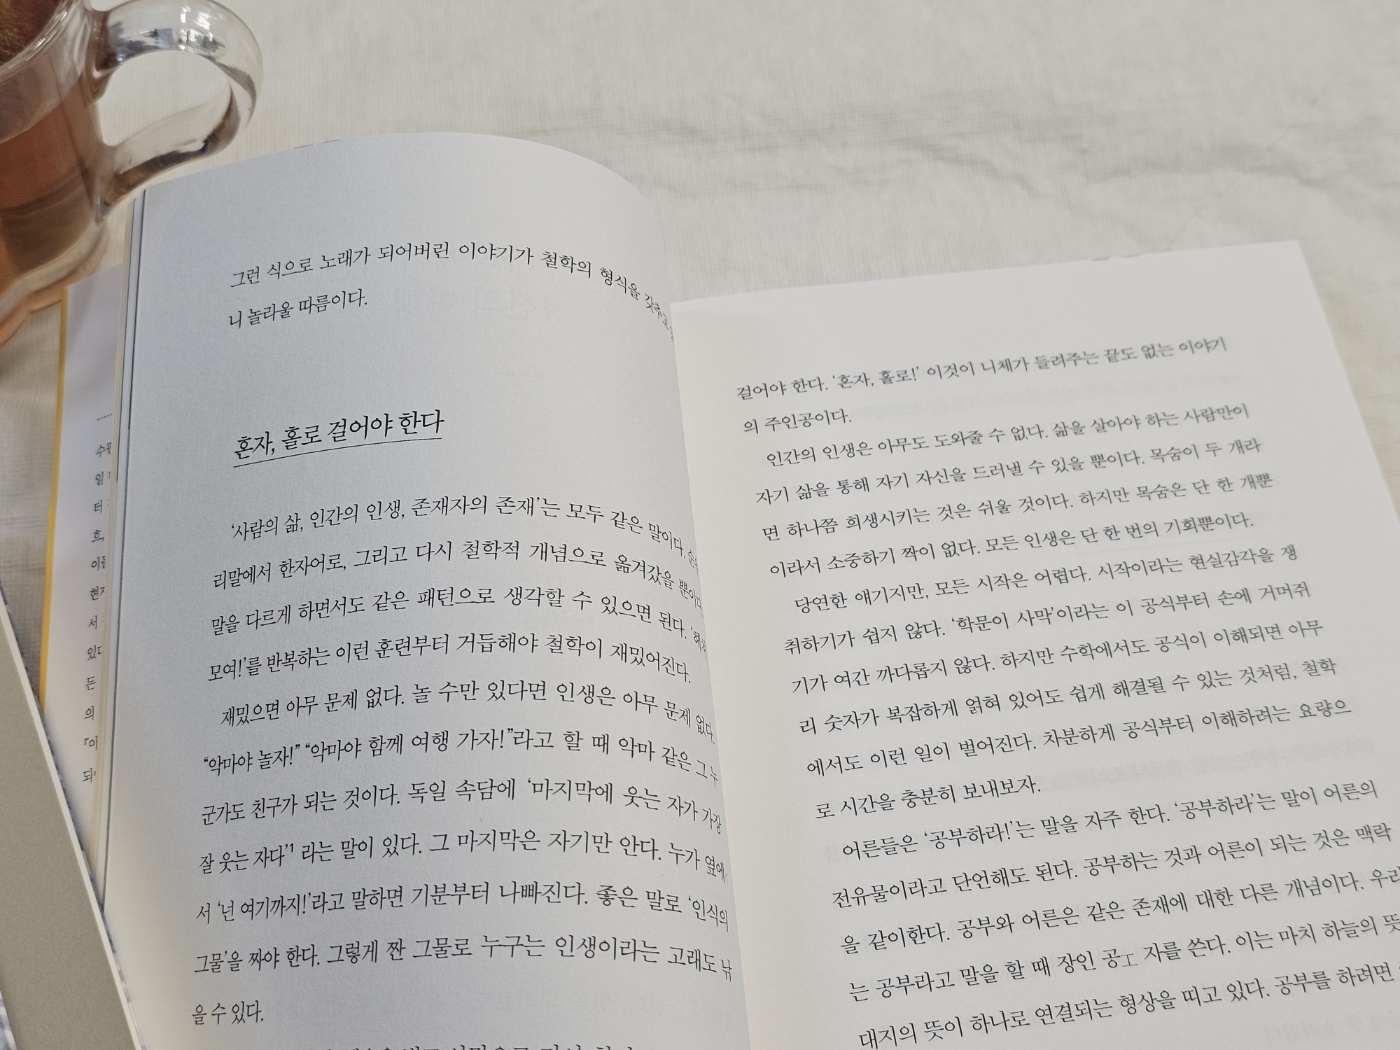 그런 식으로 노래가 되어버린 이야기가 철학의 형식을 갖추고
니 놀라울 따름이다.
혼자, 홀로 걸어야 한다
‘사람의 삶, 인간의 인생, 존재자의 존재’는 모두 같은 말이다.
리말에서 한자어로, 그리고 다시 철학적 개념으로 옮겨갔을 뿐이다
말을 다르게 하면서도 같은 패턴으로 생각할 수 있으면 된다.
모여!’를 반복하는 이런 훈련부터 거듭해야 철학이 재밌어진다.
재밌으면 아무 문제 없다. 놀 수만 있다면 인생은 아무 문제 없다.
“악마야 놀자!” “악마야 함께 여행 가자!”라고 할 때 악마 같은 그 누
군가도 친구가 되는 것이다. 독일 속담에 ‘마지막에 웃는 자가 가장
잘 웃는 자다’¹ 라는 말이 있다. 그 마지막은 자기만 안다. 누가 옆에
서 ‘넌 여기까지!’라고 말하면 기분부터 나빠진다. 좋은 말로 ‘인식의
그물’을 짜야 한다. 그렇게 짠 그물로 누구는 인생이라는 고래도 낚
을 수 있다.
걸어야 한다. ‘혼자, 홀로!’ 이것이 니체가 들려주는 끝도 없는 이야기
의 주인공이다.
인간의 인생은 아무도 도와줄 수 없다. 삶을 살아야 하는 사람만이
자기 삶을 통해 자기 자신을 드러낼 수 있을 뿐이다. 목숨이 두 개라
면 하나쯤 희생시키는 것은 쉬울 것이다. 하지만 목숨은 단 한 개뿐
이라서 소중하기 짝이 없다. 모든 인생은 단 한 번의 기회뿐이다.
당연한 얘기지만, 모든 시작은 어렵다. 시작이라는 현실감각을 쟁
취하기가 쉽지 않다. ‘학문이 사막’이라는 이 공식부터 손에 거머쥐
기가 여간 까다롭지 않다. 하지만 수학에서도 공식이 이해되면 아무
리 숫자가 복잡하게 얽혀 있어도 쉽게 해결될 수 있는 것처럼, 철학
에서도 이런 일이 벌어진다. 차분하게 공식부터 이해하려는 요량으
로 시간을 충분히 보내보자.
어른들은 ‘공부하라!’는 말을 자주 한다. ‘공부하라’는 말이 어른의
전유물이라고 단언해도 된다. 공부하는 것과 어른이 되는 것은 맥락
을 같이한다. 공부와 어른은 같은 존재에 대한 다른 개념이다. 우리
는 공부라고 말을 할 때 장인 공工 자를 쓴다. 이는 마치 하늘의 뜻
대지의 뜻이 하나로 연결되는 형상을 띠고 있다. 공부를 하려면